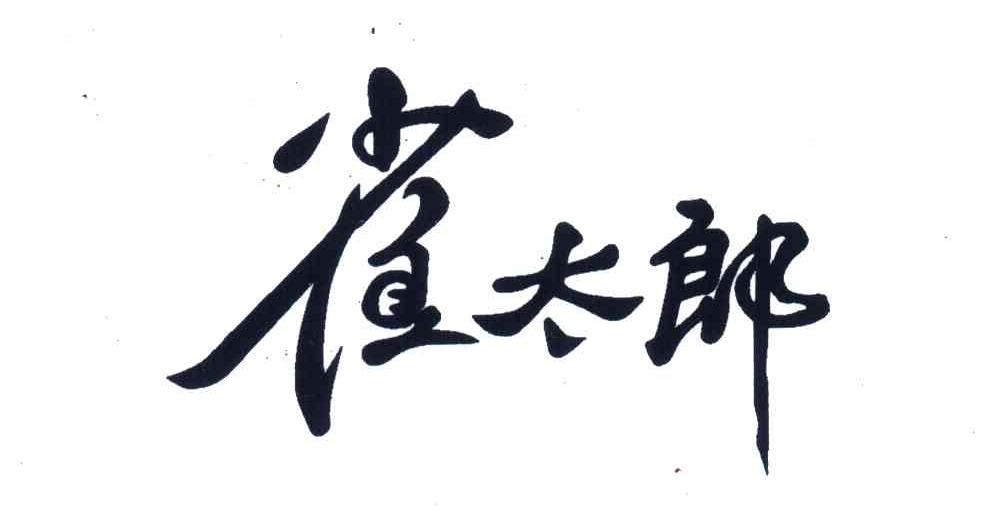 雀太郎